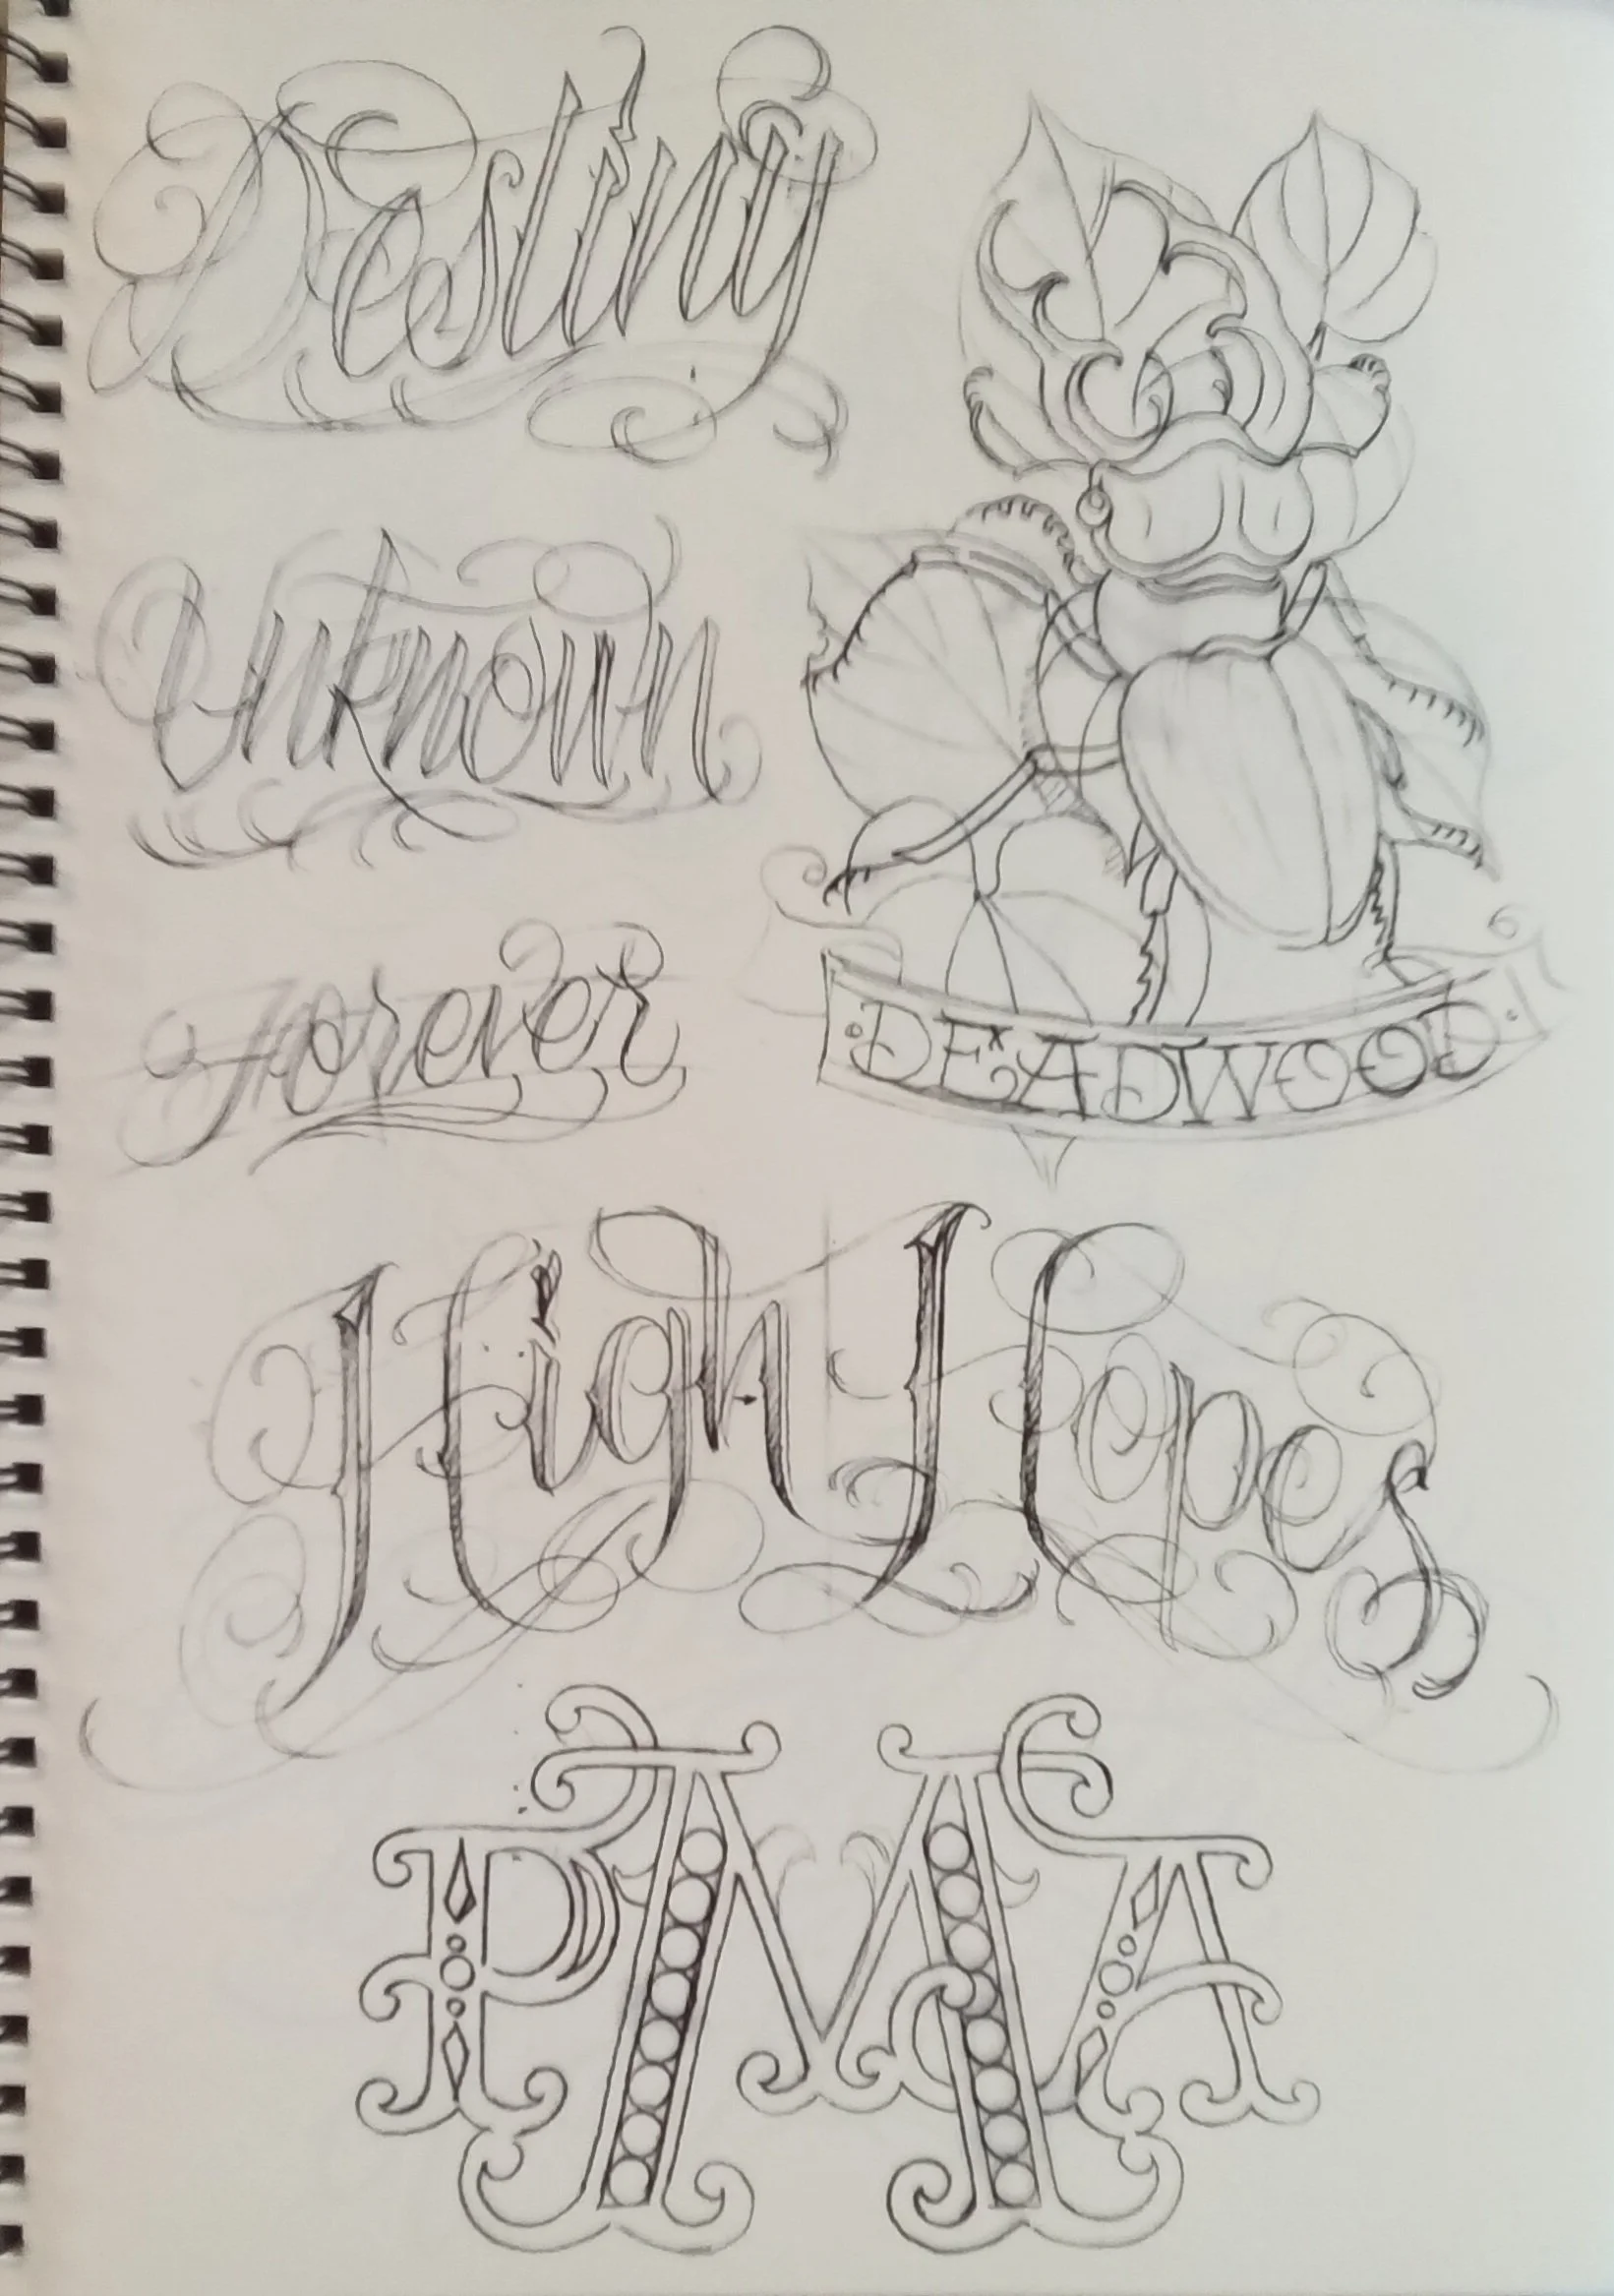 Destiny
Unknown
Forever
DEADWOOD
High Hopes
PMA